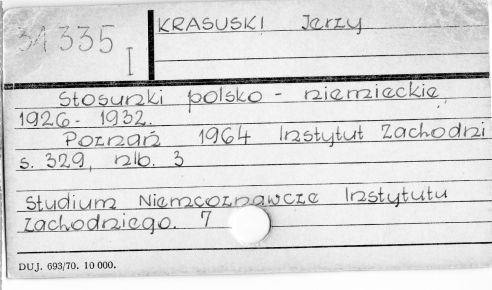 31 335 I
KRASUSKI Jerzy
Stosunki polsko - niemieckie
1926 - 1932.
Poznań 1964 Instytut Zachodni
s. 329, nlb. 3
Studium Niemcoznawcze Instytutu
Zachodniego. 7
DUJ. 693/70. 10 000.